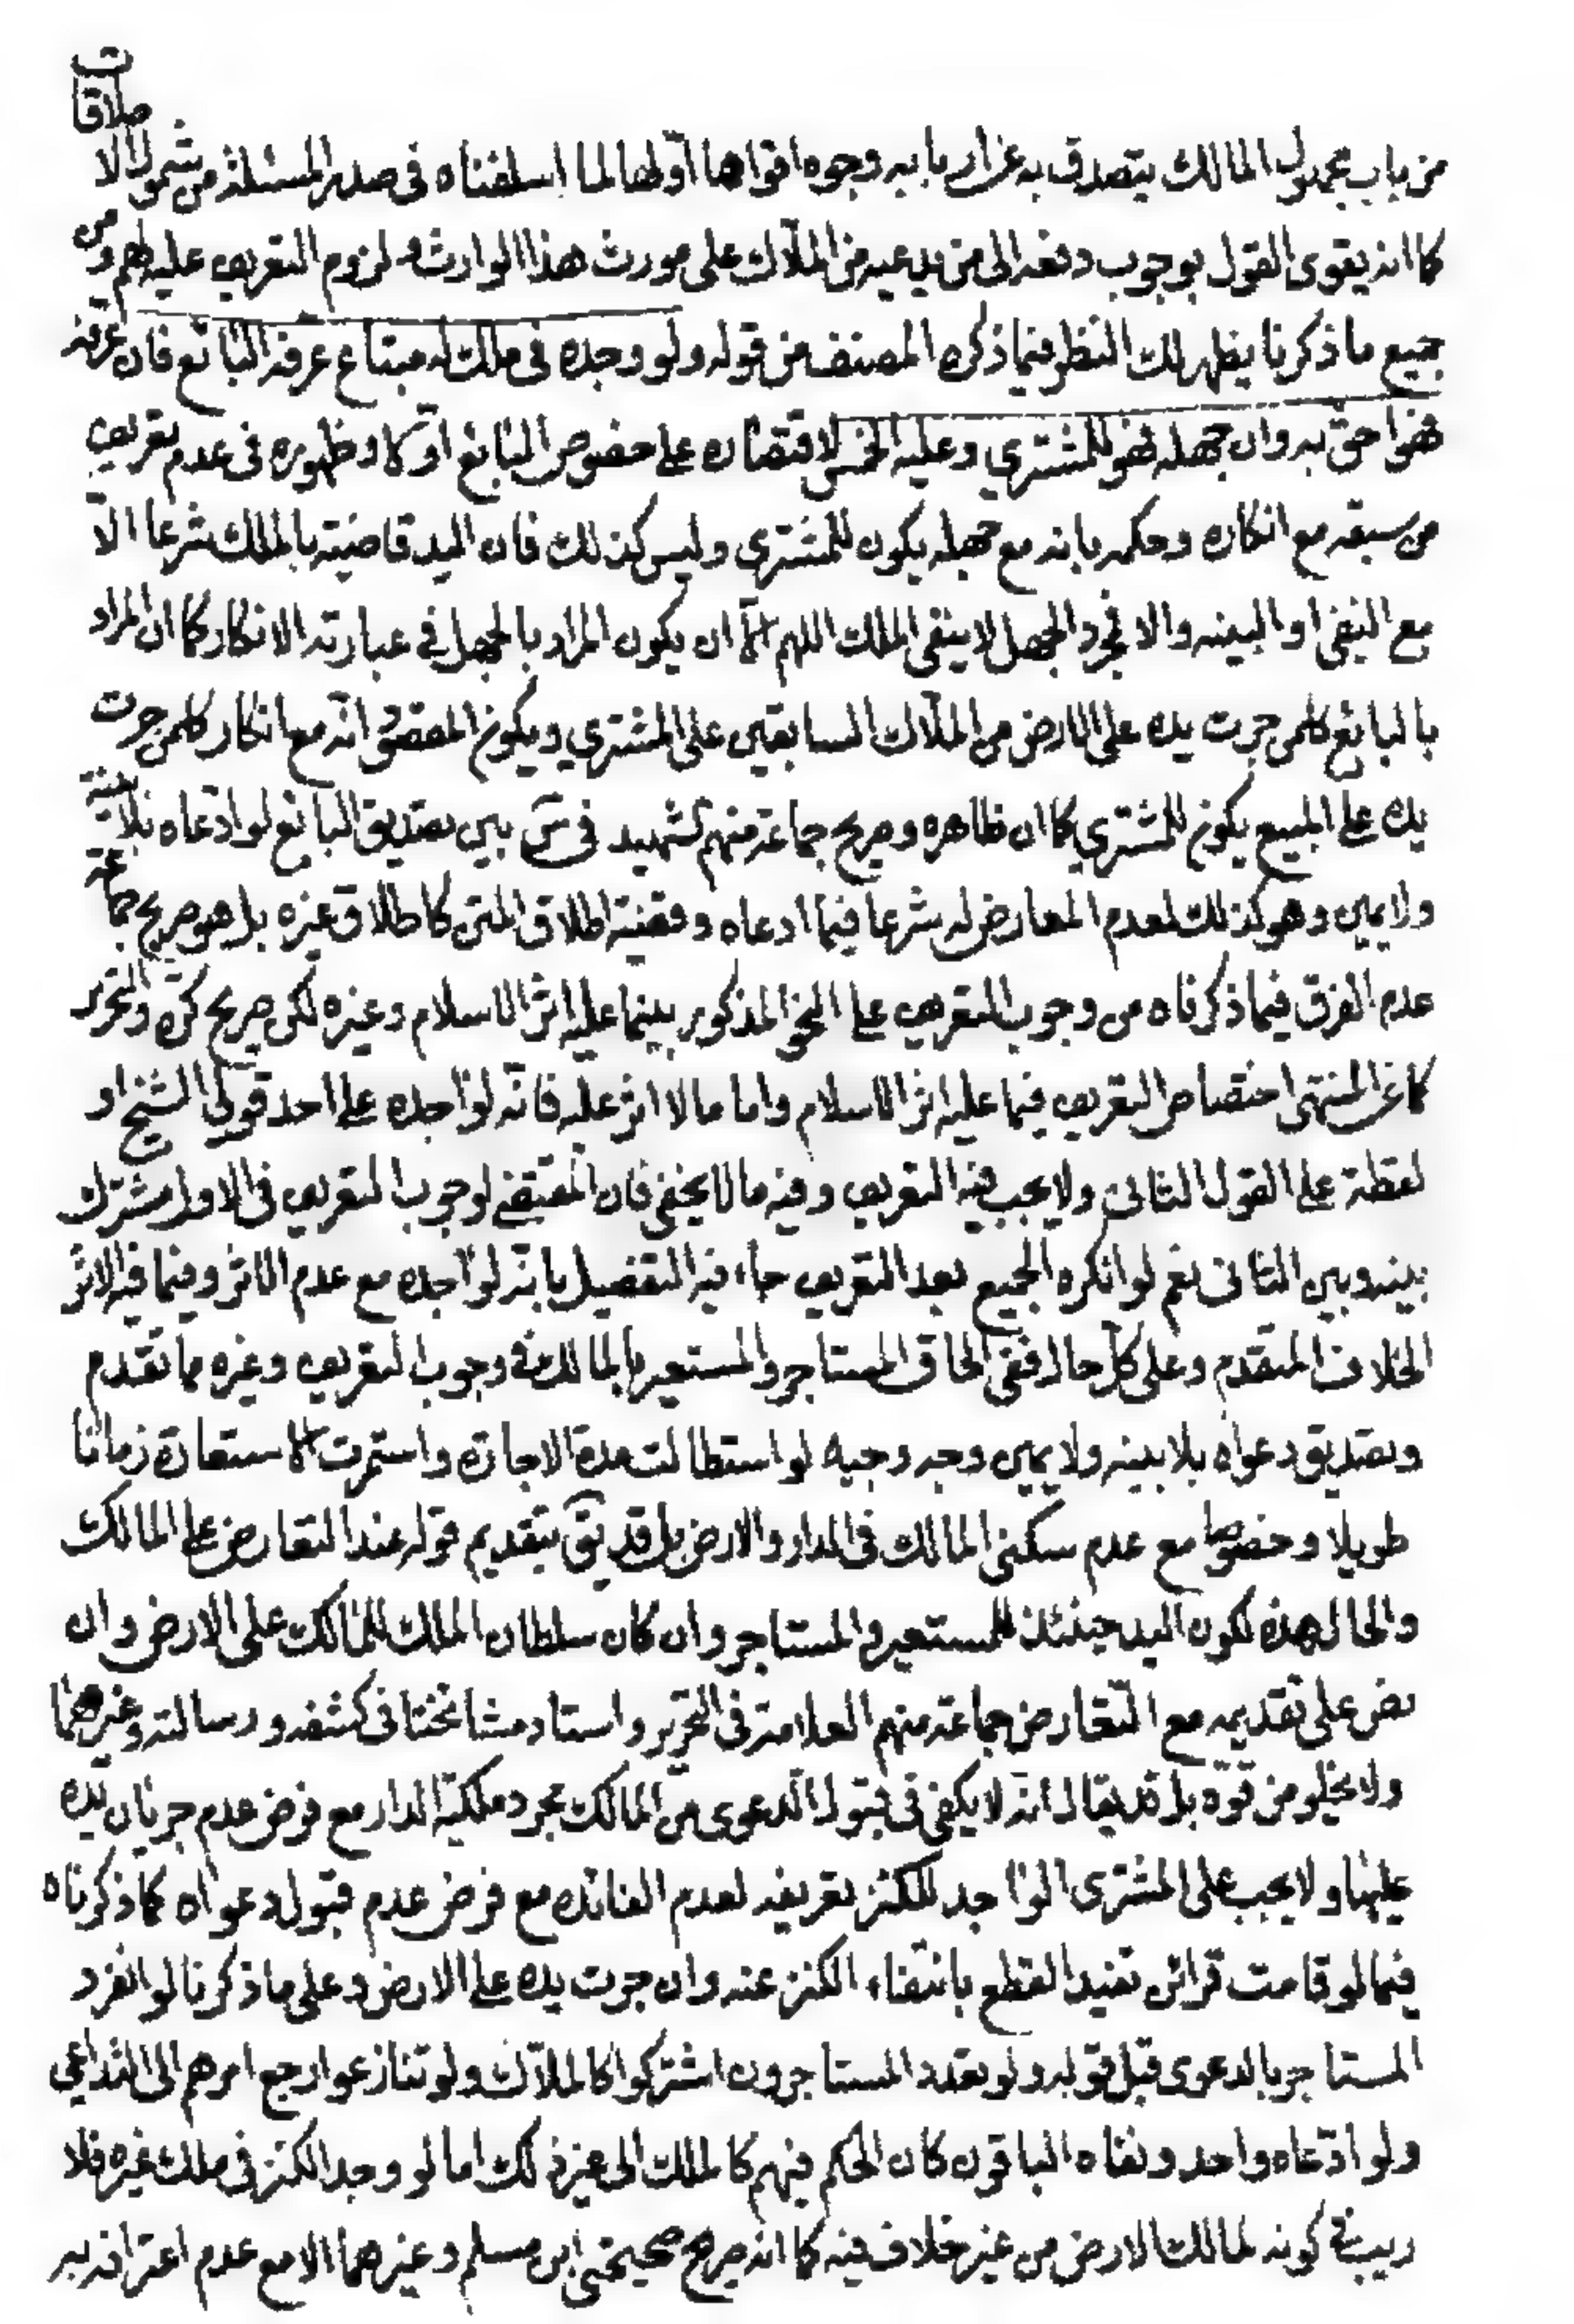 من باب مجهول المالك يتصدق به عن اربابه وجوه اقواها اولها لما اسلفناه فى صدر المسئلة من شمول الاطلاقات
كما انه يقوى القول بوجوب دفعه الى من يدعيه من الملّاك على مورث هذا الوارث ولزوم التعريف عليهم ومن
جميع ما ذكرنا يظهر لك النظر فيما ذكره المصنف من قوله ولو وجده فى ملك له مبتاع عرفه البائع فان عرفه
فهو احق به وان جهله فهو للمشتري وعليه الخمس لاقتصاره على خصوص البائع اوّلا وظهوره فى عدم تعريف
من سبقه مع انكاره وحكمه بانه مع جهله يكون للمشتري وليس كذلك فان اليد قاضية بالملك شرعا الّا
مع النفى او البينه والا فمجرد الجهل لا ينفى الملك اللهم الّا ان يكون المراد بالجهل فى عبارته الانكار كما ان المراد
بالبائع كلمن جرت يده على الارض من الملّاك السابقين على المشتري ويكون المقصود انه مع انكار كلمن جرت
يده على المبيع يكون للمشتري كما ان ظاهره وصريح جماعة منهم الشهيد فى س بين تصديق البائع لو ادعاه بلا بينة
ولا يمين وهو كذلك لعدم المعارض له شرعا فيما ادعاه وقضية اطلاق المتن كاطلاق غيره بل هو صريح جماعة
عدم الفرق فيما ذكرناه من وجوب التعريف على النحو المذكور بينما عليه اثر الاسلام وغيره لكن صريح كره والتحرير
كما عن المنتهى اختصاص التعريف فيما عليه اثر الاسلام واما ما لا اثر عليه فانّه لواجده على احد قولى الشيخ او
لقطة على القول الثانى ولا يجب فيه التعريف وفيه ما لا يخفى فان المقتضى لوجوب التعريف فى الاول مشترك
بينه وبين الثانى نعم لو انكره الجميع بعد التعريف جاء فيه التفصيل بانّه لواجده مع عدم الاثر وفيما فيه الاثر
الخلاف المتقدم وعلى كل حال ففى الحاق المستاجر والمستعير بالمالك فى وجوب التعريف وغيره مما تقدم
وتصديق دعواه بلا بينه ولا يمين وجه وجيه لو استطالت مدة الاجارة واستمرت الاستعارة زمانا
طويلا وخصوصا مع عدم سكنى المالك فى الدار والارض بل قد يق بتقديم قوله عند التعارض على المالك
والحال هذه لكون اليد حينئذ للمستعير والمستاجر وان كان سلطان الملك للمالك على الارض وان
نص على تقديمه مع التعارض جماعة منهم العلامة فى التحرير واستاد مشائخنا فى كشفه ورسالته وغيرهما
ولا يخلو من قوّة بل قد يقال انه لا يكفى فى قبول الدعوى من المالك مجرد ملكيّة الدار مع فرض عدم جريان يده
عليها ولا يجب على المشترى الواجد للكنز تعريفه لعدم الفائده مع فرض عدم قبول دعواه كما ذكرناه
فيما لو قامت قرائن تفيد القطع بانتفاء الكنز عنه وان جرت يده على الارض وعلى ما ذكرنا لو انفرد
المستاجر بالدعوى قبل قوله ولو تعدد المستاجرون اشتركوا كالملّاك ولو تنازعوا رجع امرهم الى التداعي
ولو ادّعاه واحد ونفاه الباقون كان الحكم فيهم كالملك الى غير ذلك اما لو وجد الكنز فى ملك غيره فلا
ريب فى كونه لمالك الارض من غير خلاف فيه كما انه صريح صحيحتى ابن مسلم وغيرهما الا مع عدم اعترافه به